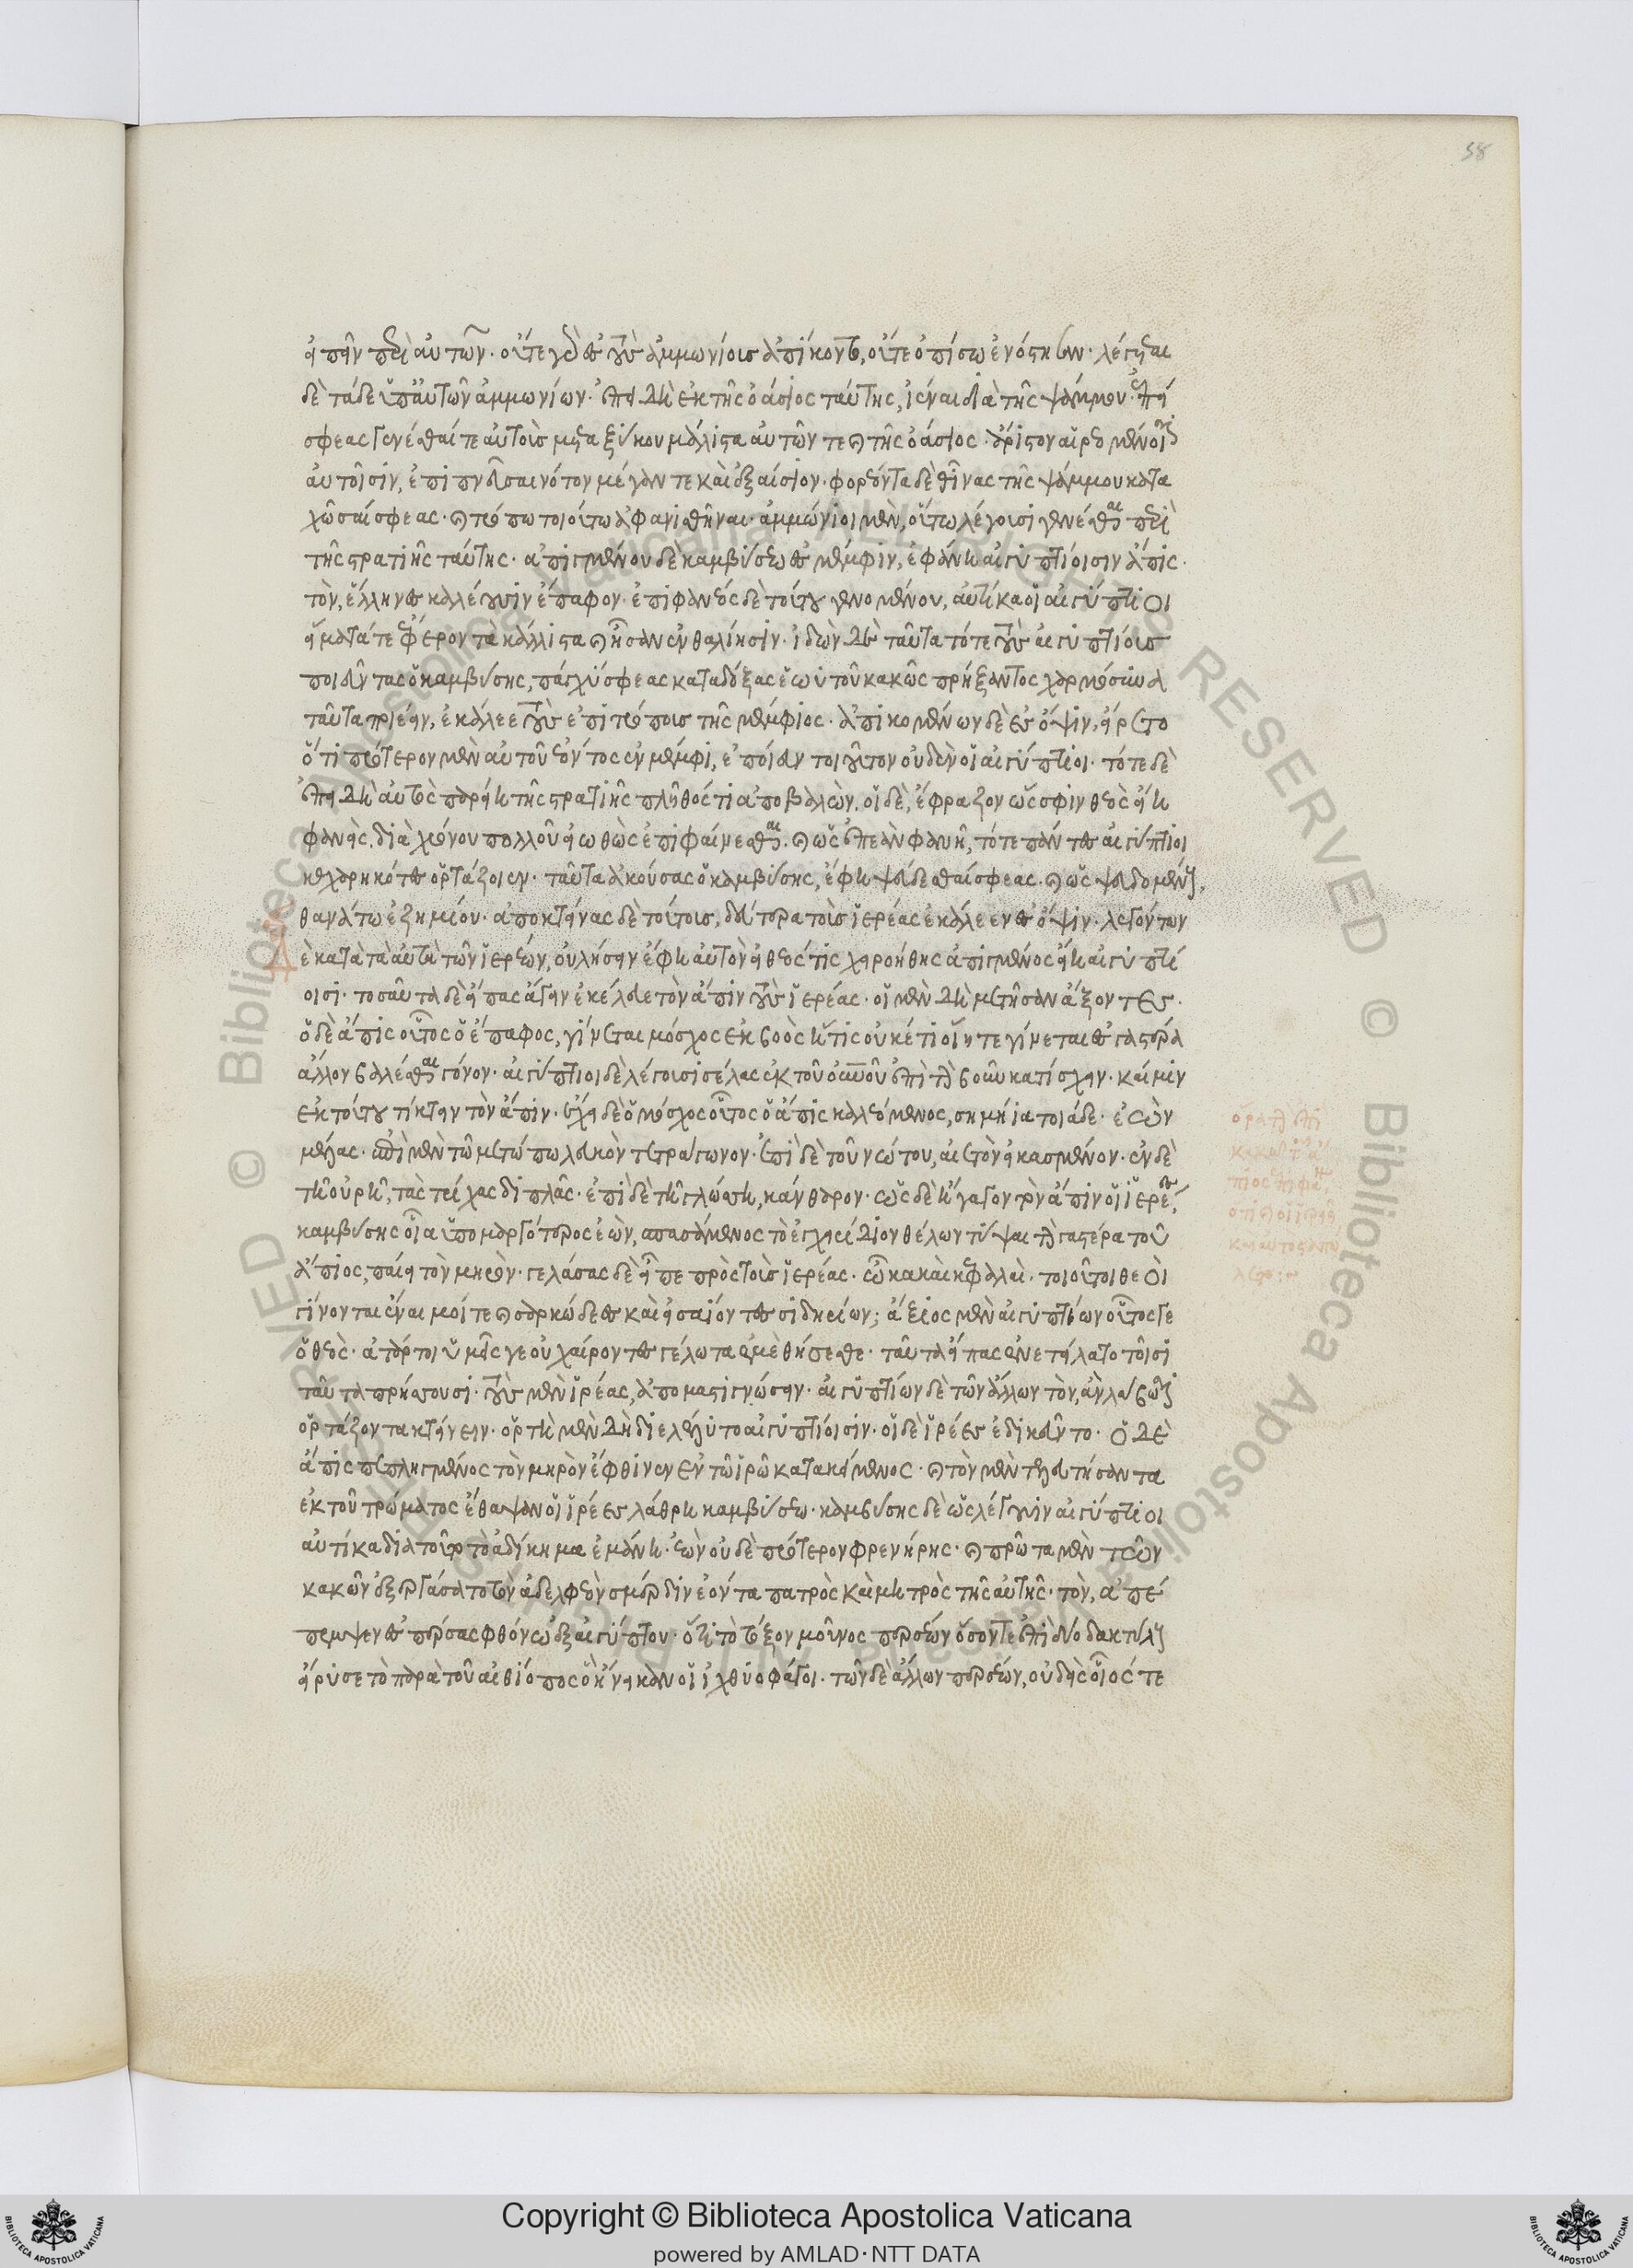 58
εἰπεῖν περὶ αὐτῶν· οὔτε γὰρ ἐς τοὺς ἀμμωνίους ἀπίκοντο, οὔτε ὀπίσω ἐνόστησαν· λέγεται
δὲ τάδε ὑπ' αὐτῶν ἀμμωνίων· ἐπειδὴ ἐκ τῆς ὀάσιος ταύτης, ἰέναι διὰ τῆς ψάμμου ἐπὶ
σφέας γενέσθαι τε αὐτοὺς μεταξύ κου μάλιστα αὐτῶν τε καὶ τῆς ὀάσιος· ἄριστον αἱρεομένοις
αὐτοῖσιν, ἐπιπνεῦσαι νότον μέγαν τε καὶ ἐξαίσιον· φορέοντα δὲ θῖνας τῆς ψάμμου κατα
χῶσαί σφεας· καὶ τρόπω τοιούτω ἀφανισθῆναι· ἀμμώνιοι μὲν, οὕτω λέγουσι γενέσθαι περὶ
τῆς στρατιῆς ταύτης· ἀπιγμένου δὲ καμβύσεω ἐς μέμφιν, ἐφάνη αἰγυπτίοισιν ἄπις·
τὸν, ἕλληνες καλέουσιν ἔπαφον· ἐπιφανέος δὲ τούτου γενομένου, αὐτίκα οἱ αἰγύπτιοι
εἵματά τε ἐφέρον τὰ κάλλιστα καὶ ἦσαν ἐν θαλίησιν· ἰδὼν δὲ ταῦτα τότε τοὺς αἰγυπτίους
ποιεῦντας ὁ καμβύσης, πάγχύ σφεας καταδόξας ἑωυτοῦ κακῶς πρήξαντος χαρμόσυνα
ταῦτα ποιέειν, ἐκάλεε τοὺς ἐπιτρόπους τῆς μέμφιος· ἀπικομένων δὲ ἐς ὄψιν, εἴρετο
ὅτι πρότερον μὲν αὐτοῦ ἐόντος ἐν μέμφι, ἐποίευν τοιοῦτον οὐδὲν οἱ αἰγύπτιοι· τότε δὲ
ἐπειδὴ αὐτὸς παρείη τῆς στρατιῆς πλῆθός τι ἀποβαλών. οἱ δὲ, ἔφραζον ὥς σφιν θεὸς εἴη
φανεὶς, διὰ χρόνου πολλοῦ εἰωθὼς ἐπιφαίνεσθαι. καὶ ὡς ἐπεὰν φανῆ, τότε πάντες αἰγύπτιοι
κεχαρηκότες ὁρτάζοιεν· ταῦτα ἀκούσας ὁ καμβύσης, ἔφη ψεύδεσθαί σφεας. καὶ ὡς ψευδομένους,
θανάτω ἐζημίου· ἀποκτείνας δὲ τούτους, δεύτερα τοὺς ἱερέας ἐκάλεεν ἐς ὄψιν· λεγόντων
δὲ κατὰ τὰ αὐτὰ τῶν ἱερέων, οὐ λήσειν ἔφη αὐτὸν εἰ θεός τις χειροήθης ἀπιγμένος εἴη αἰγυπτί
οισι· τοσαῦτα δὲ εἴπας ἄγειν ἐκέλευε τὸν ἄπιν τοὺς ἱερέας· οἱ μὲν δὴ μετῆσαν ἄξοντες·
ὁ δὲ ἄπις οὗτος ὁ ἔπαφος, γίνεται μόσχος ἐκ βοὸς ἥτις οὐκέτι οἵη τε γίνεται ἐς γαστέρα
ἄλλον βαλέσθαι γόνον· αἰγύπτιοι δὲ λέγουσι σέλας ἐκ τοῦ οὐρανοῦ ἐπὶ τὴν βοῦν κατίσχειν· καί μιν
ἐκ τούτου τίκτειν τὸν ἄπιν· ἔχει δὲ ὁ μόσχος οὗτος ὁ ἄπις καλεόμενος, σημήια τοιάδε· ἐὼν
μέλας· ἐπὶ μὲν τῶ μετώπω λευκὸν τετράγωνον· ἐπὶ δὲ τοῦ νώτου, αἰετὸν εἰκασμένον· ἐν δὲ
τῆ οὐρῆ, τὰς τρίχας διπλᾶς· ἐπὶ δὲ τῆ γλώσση, κάνθαρον· ὡς δὲ ἤγαγον τὸν ἄπιν οἱ ἱερέες,
καμβύσης οἷα ὑπομαργότερος ἐὼν, σπασάμενος τὸ ἐγχειρίδιον θέλων τύψαι τὴν γαστέρα τοῦ
ἄπιος, παίει τὸν μηρόν· γελάσας δὲ εἶπε πρὸς τοὺς ἱερέας· ὦ κακαὶ κεφαλαὶ· τοιοῦτοι θεοὶ
γίνονται ἔναιμοί τε καὶ σαρκώδεες καὶ ἐπαίοντες σιδηρίων; ἄξιος μὲν αἰγυπτίων οὗτός γε
ὁ θεὸς· ἀτάρ τοι ὑμεῖς γε οὐ χαίροντες γέλωτα ἐμὲ θήσεσθε· ταῦτα εἴπας ἐνετείλατο τοῖσι
ταῦτα πρήσσουσι· τοὺς μὲν ἱρέας, ἀπομαστιγώσειν· αἰγυπτίων δὲ τῶν ἄλλων τὸν, ἂν λάβωσι
ὁρτάζοντα κτείνειν· ὁρτὴ μὲν δὴ διελέλυτο αἰγυπτίοισιν· οἱ δὲ ἱρέες ἐδικαιεῦντο· ὁ δὲ
ἄπις πεπληγμένος τὸν μηρὸν ἔφθινεν ἐν τῶ ἱρῶ κατακείμενος· καὶ τὸν μὲν τελευτήσαντα
ἐκ τοῦ τρώματος ἔθαψαν οἱ ἱρέες λάθρη καμβύσεω· καμβύσης δὲ ὡς λέγουσιν αἰγύπτιοι
αὐτίκα διὰ τοῦτο τὸ ἀδίκημα ἐμάνη· ἐὼν οὐδὲ πρότερον φρενήρης· καὶ πρῶτα μὲν τῶν
κακῶν ἐξεργάσατο τὸν ἀδελφεὸν σμέρδιν ἐόντα πατρὸς καὶ μητρὸς τῆς αὐτῆς· τὸν, ἀπέ
πεμψεν ἐς πέρσας φθόνω ἐξ αἰγύπτου· ὅτι τὸ τόξον μοῦνος περσέων ὅσον τε ἐπὶ δύο δακτύλους
εἴρυσε τὸ παρὰ τοῦ αἰθίοπος ὃ ἤνεικαν οἱ ἰχθυοφάγοι· τῶν δὲ ἄλλων περσέων, οὐδεὶς οἷός τε
Copyright © Biblioteca Apostolica Vaticana
powered by AMLAD·NTT DATA